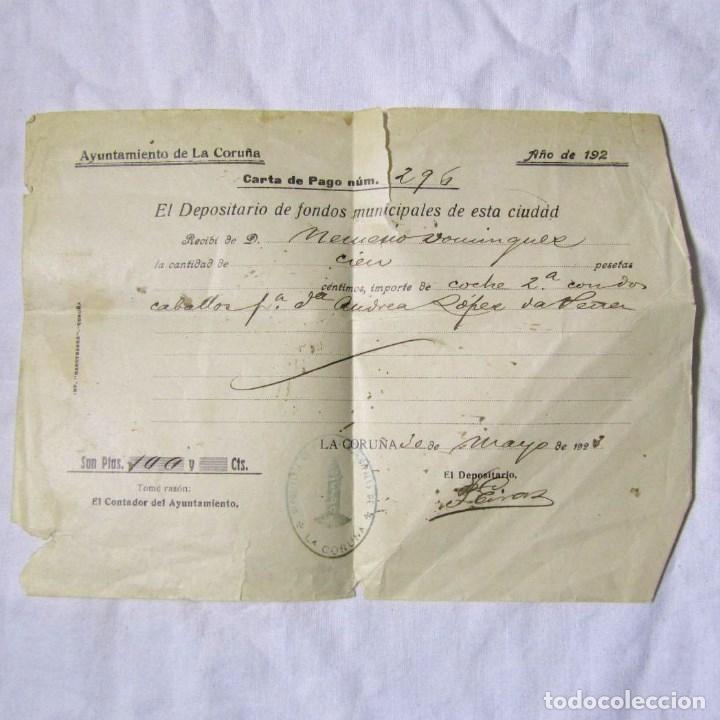 Ayuntamiento de La Coruña
Año de 192
Carta de Pago núm. 296
El Depositario de fondos municipales de esta ciudad
Recibí de D. Nemesio Dominguez
la cantidad de cien pesetas
céntimos, importe de coche 2.ª con dos
caballos p.ª d.ª Andrea López
LA CORUÑA 30 de Mayo de 1923
Son Ptas. 100 y Cts.
El Depositario,
Tomé razón:
El Contador del Ayuntamiento,
LA CORUÑA
todocoleccion.net